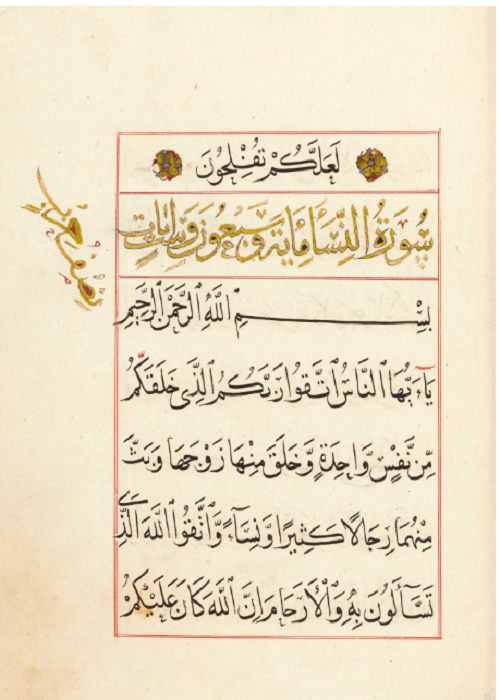 لَعَلَّكُمْ تُفْلِحُونَ
سُورَةُ النِّسَا مَايَة وَسَبْعُونَ وَسِتّ ايَات
بِسْمِ ٱللَّهِ ٱلرَّحْمَٰنِ ٱلرَّحِيمِ
يَاءَيُّهَا ٱلنَّاسُ ٱتَّقُوا رَبَّكُمُ ٱلَّذِى خَلَقَكُمْ
مِّن نَّفْسٍ وَّاحِدَةٍ وَّخَلَقَ مِنْهَا زَوْجَهَا وَبَثَّ
مِنْهُمَا رِجَالًا كَثِيرًا وَّنِسَآءً وَّٱتَّقُوا ٱللَّهَ ٱلَّذِى
تَسَّآءَلُونَ بِهِ وَٱلْأَرْحَامَ إِنَّ ٱللَّهَ كَانَ عَلَيْكُمْ
نصف حزب